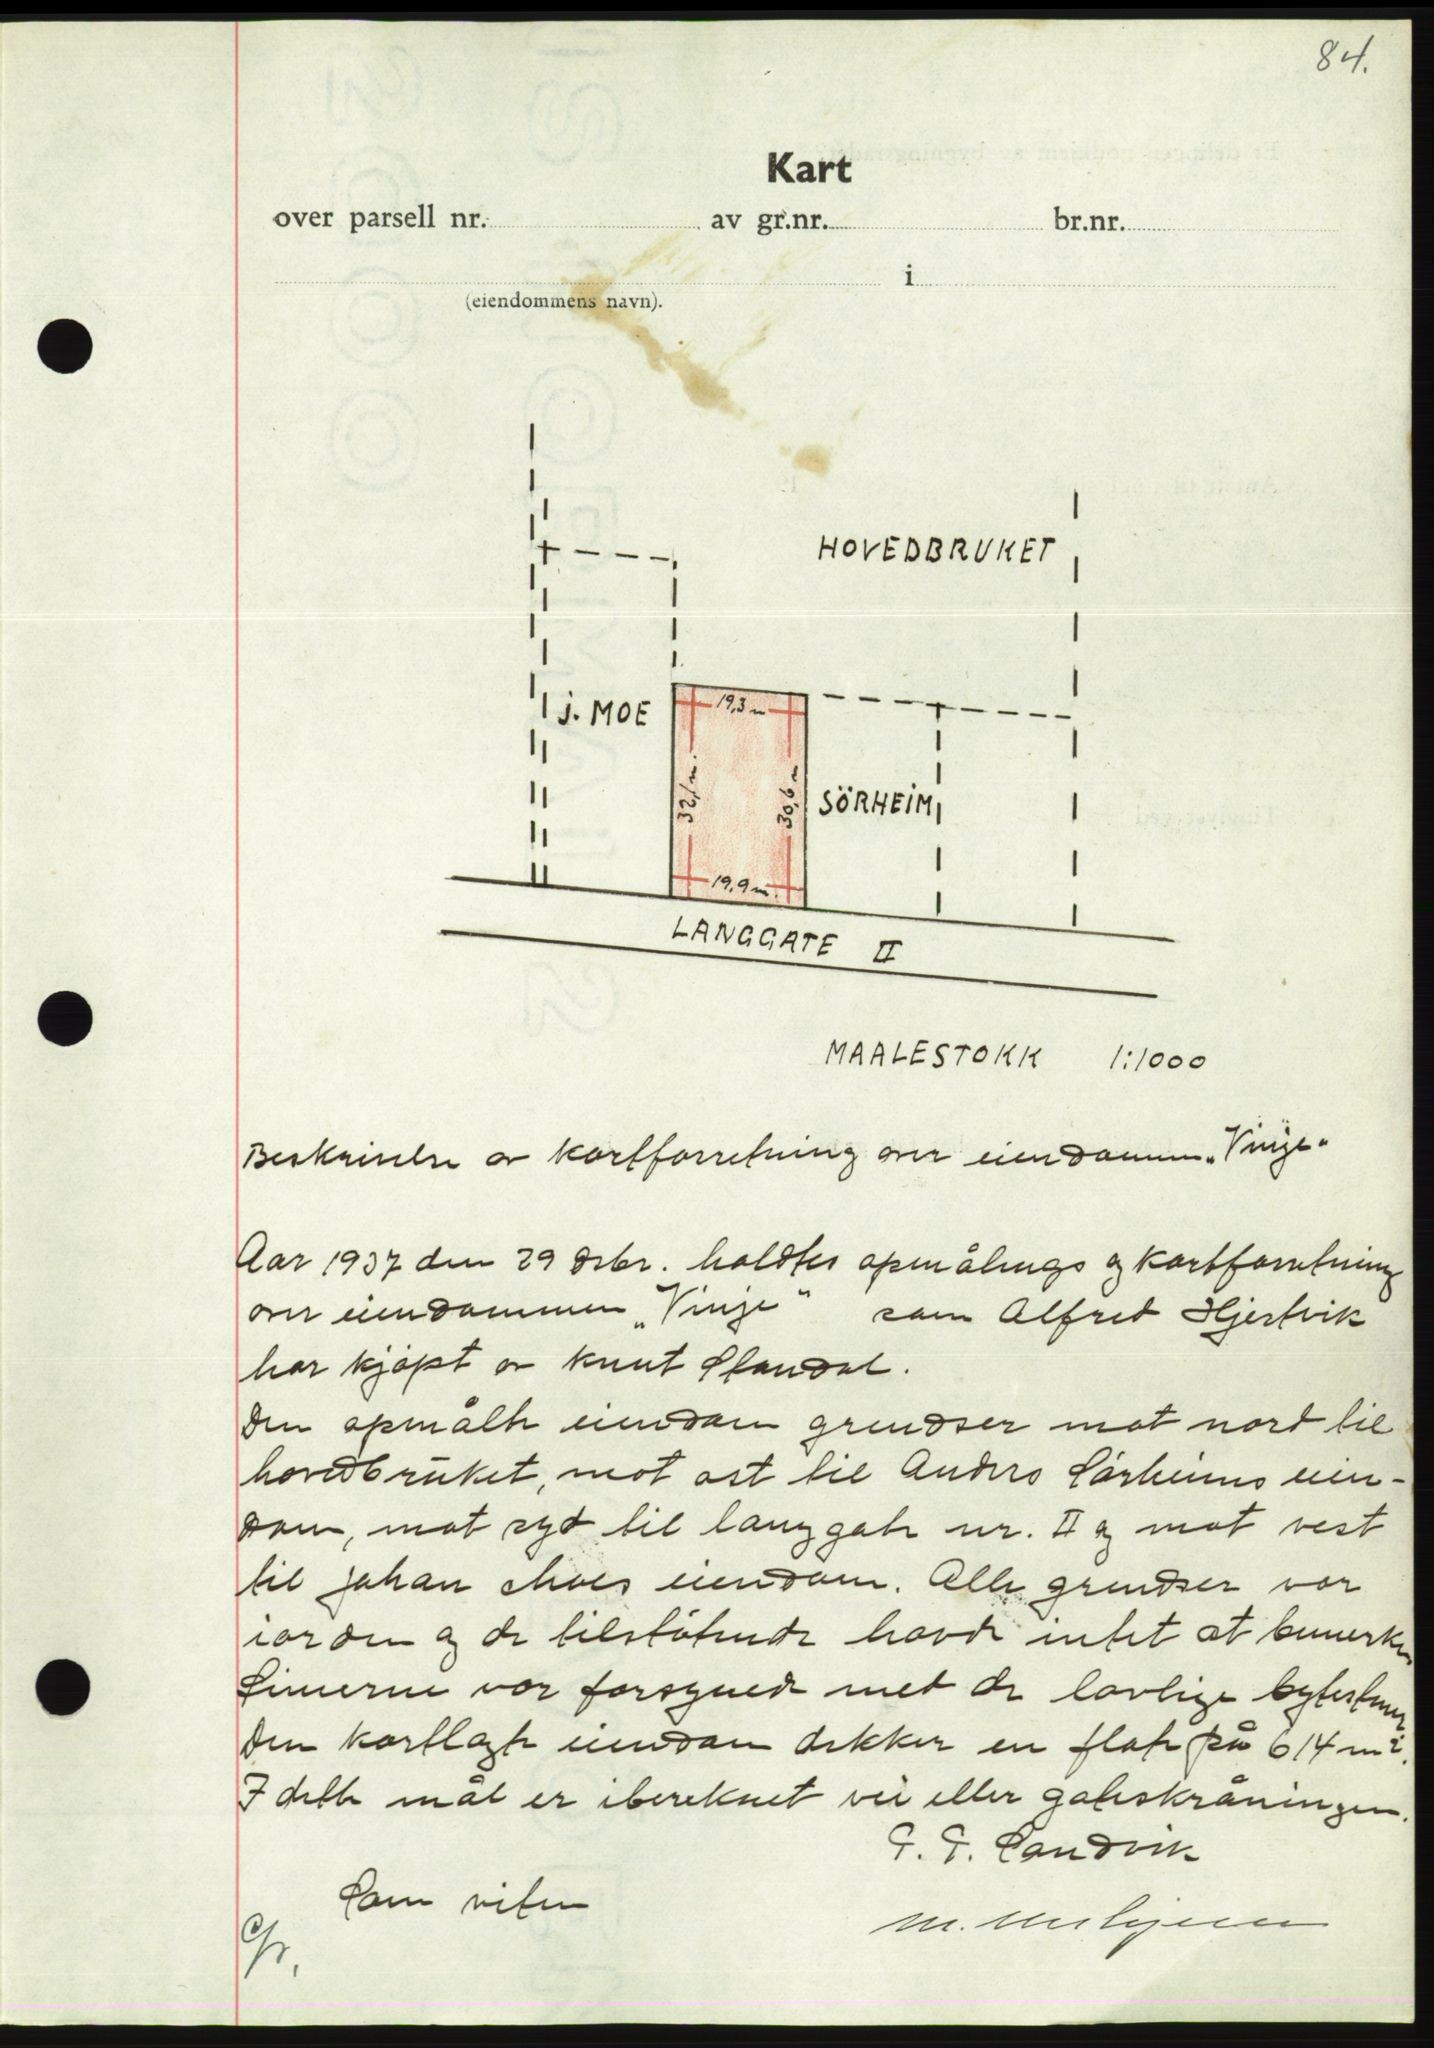 84.
Kart
over parsell nr. av gr.nr. br.nr.
i
(eiendommens navn).
HOVEDBRUKET
J. MOE
19,3 m
32,1 m.
30,6 m
SÖRHEIM
19,9 m.
LANGGATE II
MAALESTOKK 1:1000
Beskrivelse av kartforretning over eiendommen „Vinje“
Aar 1937 den 29 dsbr. holdtes opmålings og kartforretning
over eiendommen „Vinje“ som Alfred Hjertvik
har kjøpt av Knut Standal.
Den opmålte eiendom grendser mot nord til
hovedbruket, mot ost til Anders Sørheims eien-
dom, mot syd til langgate nr. II og mot vest
til Johan Moes eiendom. Alle grendser var
iorden og de tilstøtende havde intet at bemerke
Linierne var forsynede met de lovlige
Den kartlagte eiendom dekker en flate på 614 m².
I dette mål er ibereknet vei eller gateskråningen.
Sandvik
Som viten
M.